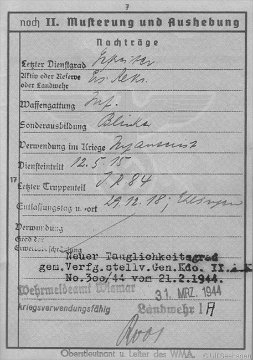 7
noch II. Musterung und Aushebung
Nachträge
Letzter Dienstgrad
Aktiv oder Reserve
oder Landwehr
Waffengattung Inf.
Sonderausbildung
Verwendung im Kriege
Diensteintritt 12.5.15
17
Letzter Truppenteil I.R. 84
Entlassungstag u -ort 29.12.18;
Verwendung
Grad der
Neuer Tauglichkeitsgrad
gem. Verfg. stellv. Gen. Kdo. II. A.K
No. 300/44 vom 21.2.1944.
Wehrmeldeamt Wismar 31. MRZ. 1944
kriegsverwendungsfähig Landwehr I A
Roos
Oberstleutnant u. Leiter des W.M.A.